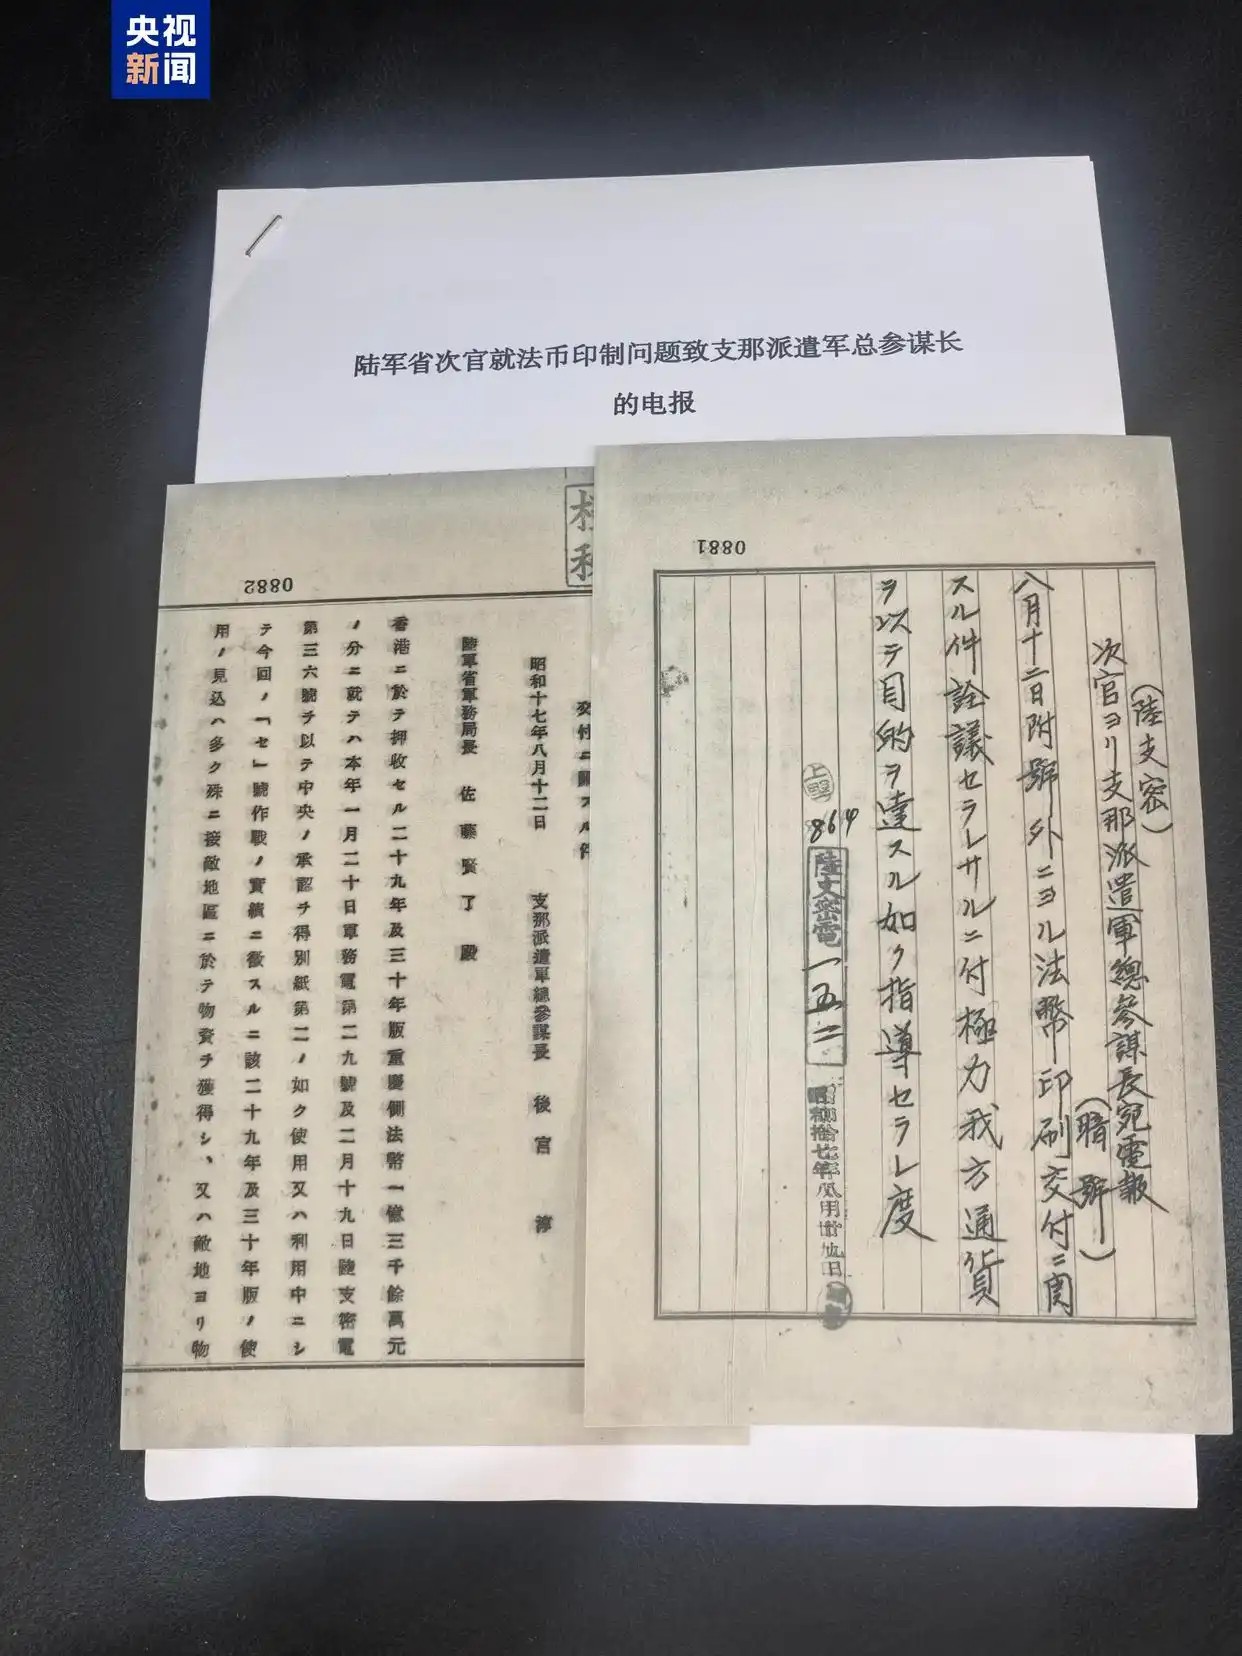 央视
新闻
陆军省次官就法币印制问题致支那派遣军总参谋长
的电报
0881
(陸支密)
次官ヨリ支那派遣軍總参謀長宛電報
(暗號)
八月十二日附號外ニヨル法幣印刷交付ニ関
スル件詮議セラレサルニ付極力我方通貨
ヲ以テ目的ヲ達スル如ク指導セラレ度
864
陸支密電一五二
昭和拾七年八月廿九日
0882
交付ニ關スル件
昭和十七年八月十二日 支那派遣軍總參謀長 後宮 淳
陸軍省軍務局長 佐藤賢了殿
香港ニ於テ押收セル二十九年及三十年版重慶側法幣一億三千餘萬元
ノ分ニ就テハ本年一月二十日軍務電第二九號及二月十九日陸支密電
第三六號ヲ以テ中央ノ承認ヲ得別紙第二ノ如ク使用又ハ利用中ニシ
テ今回ノ「セ」號作戰ノ實績ニ徵スルニ該二十九年及三十年版ノ使
用ノ見込ハ多ク殊ニ接敵地區ニ於テ物資ヲ獲得シ、又ハ敵地ヨリ物